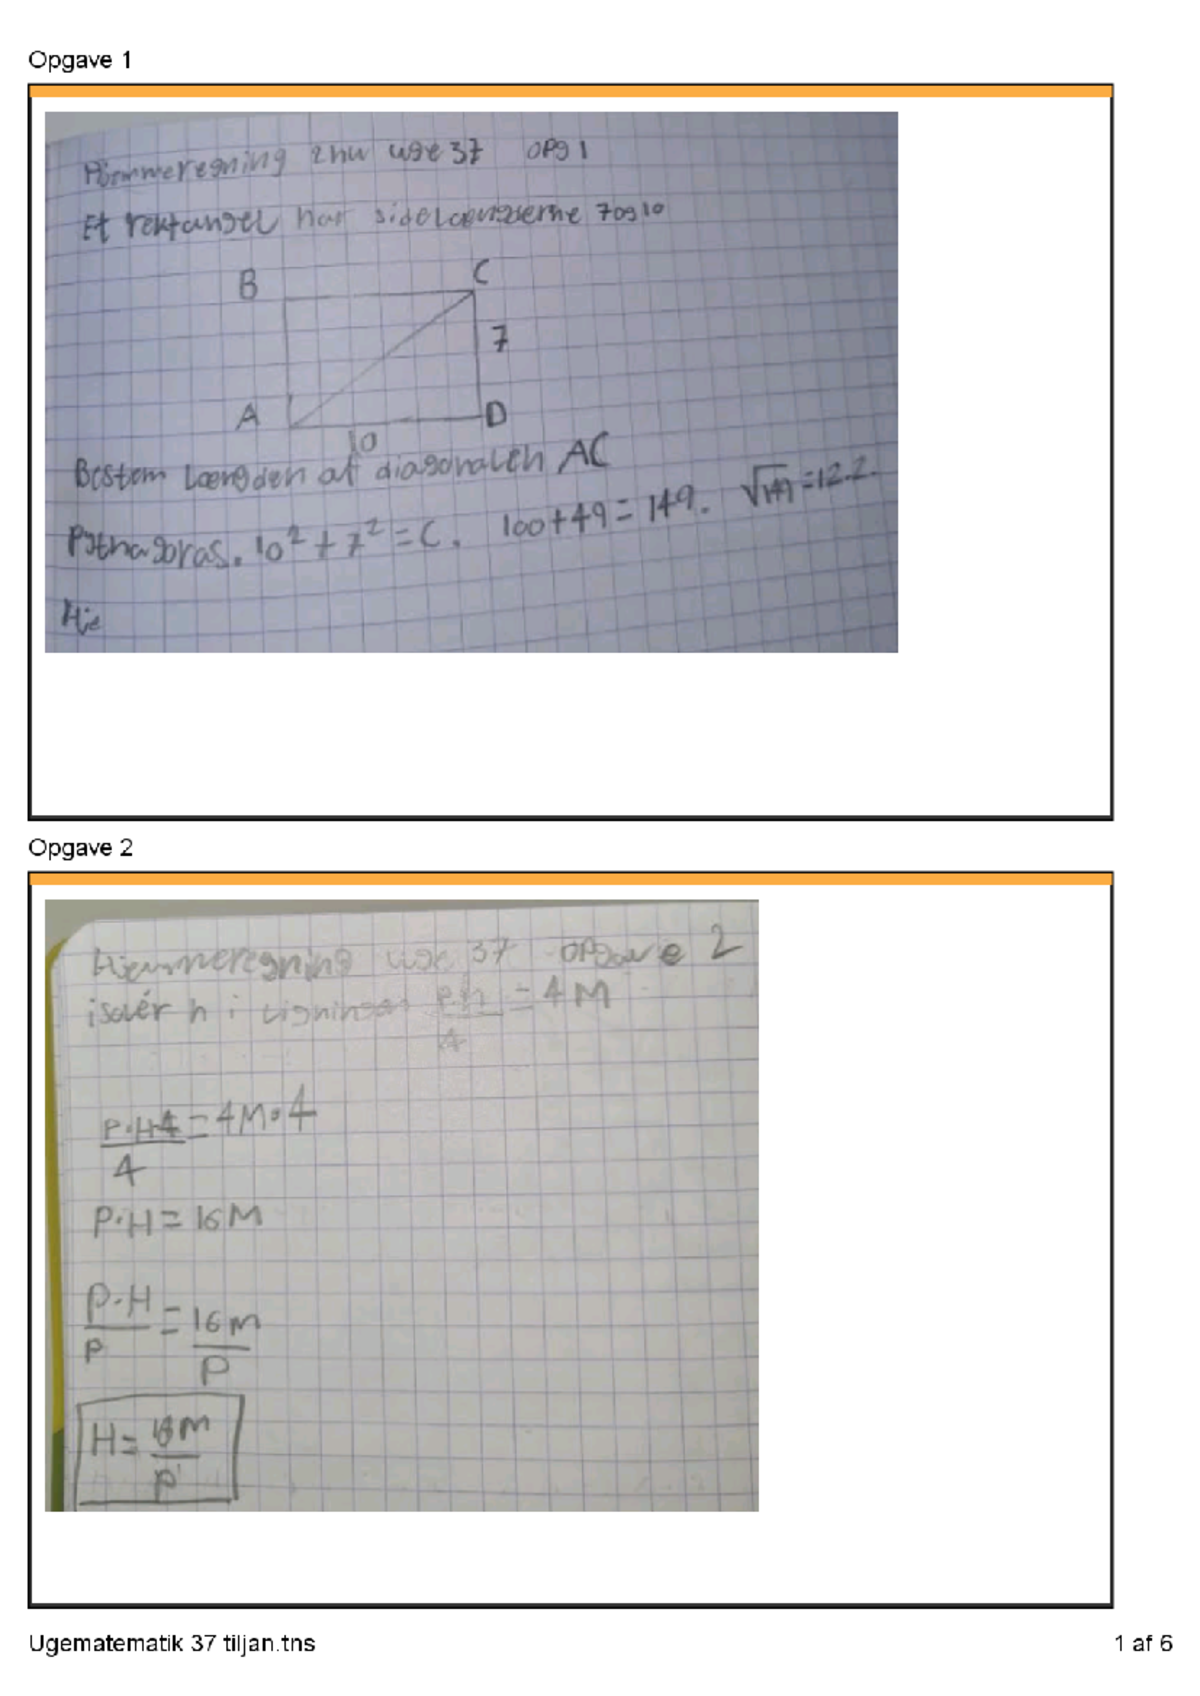 Opgave 1
Hjemmeregning 2hu uge 37 opg 1
Et rektangel har sidelængderne 7 og 10
B C
7
A D
10
Bestem længden af diagonalen AC
Pythagoras. 10² + 7² = C. 100+49 = 149. √149 = 12.2.
Hje
Opgave 2
Hjemmeregning uge 37 opgave 2
isolér h i ligningen P·h/4 = 4M
P·H4/4 = 4M·4
P·H = 16M
P·H/P = 16M/P
H = 16M/P
Ugematematik 37 tiljan.tns 1 af 6